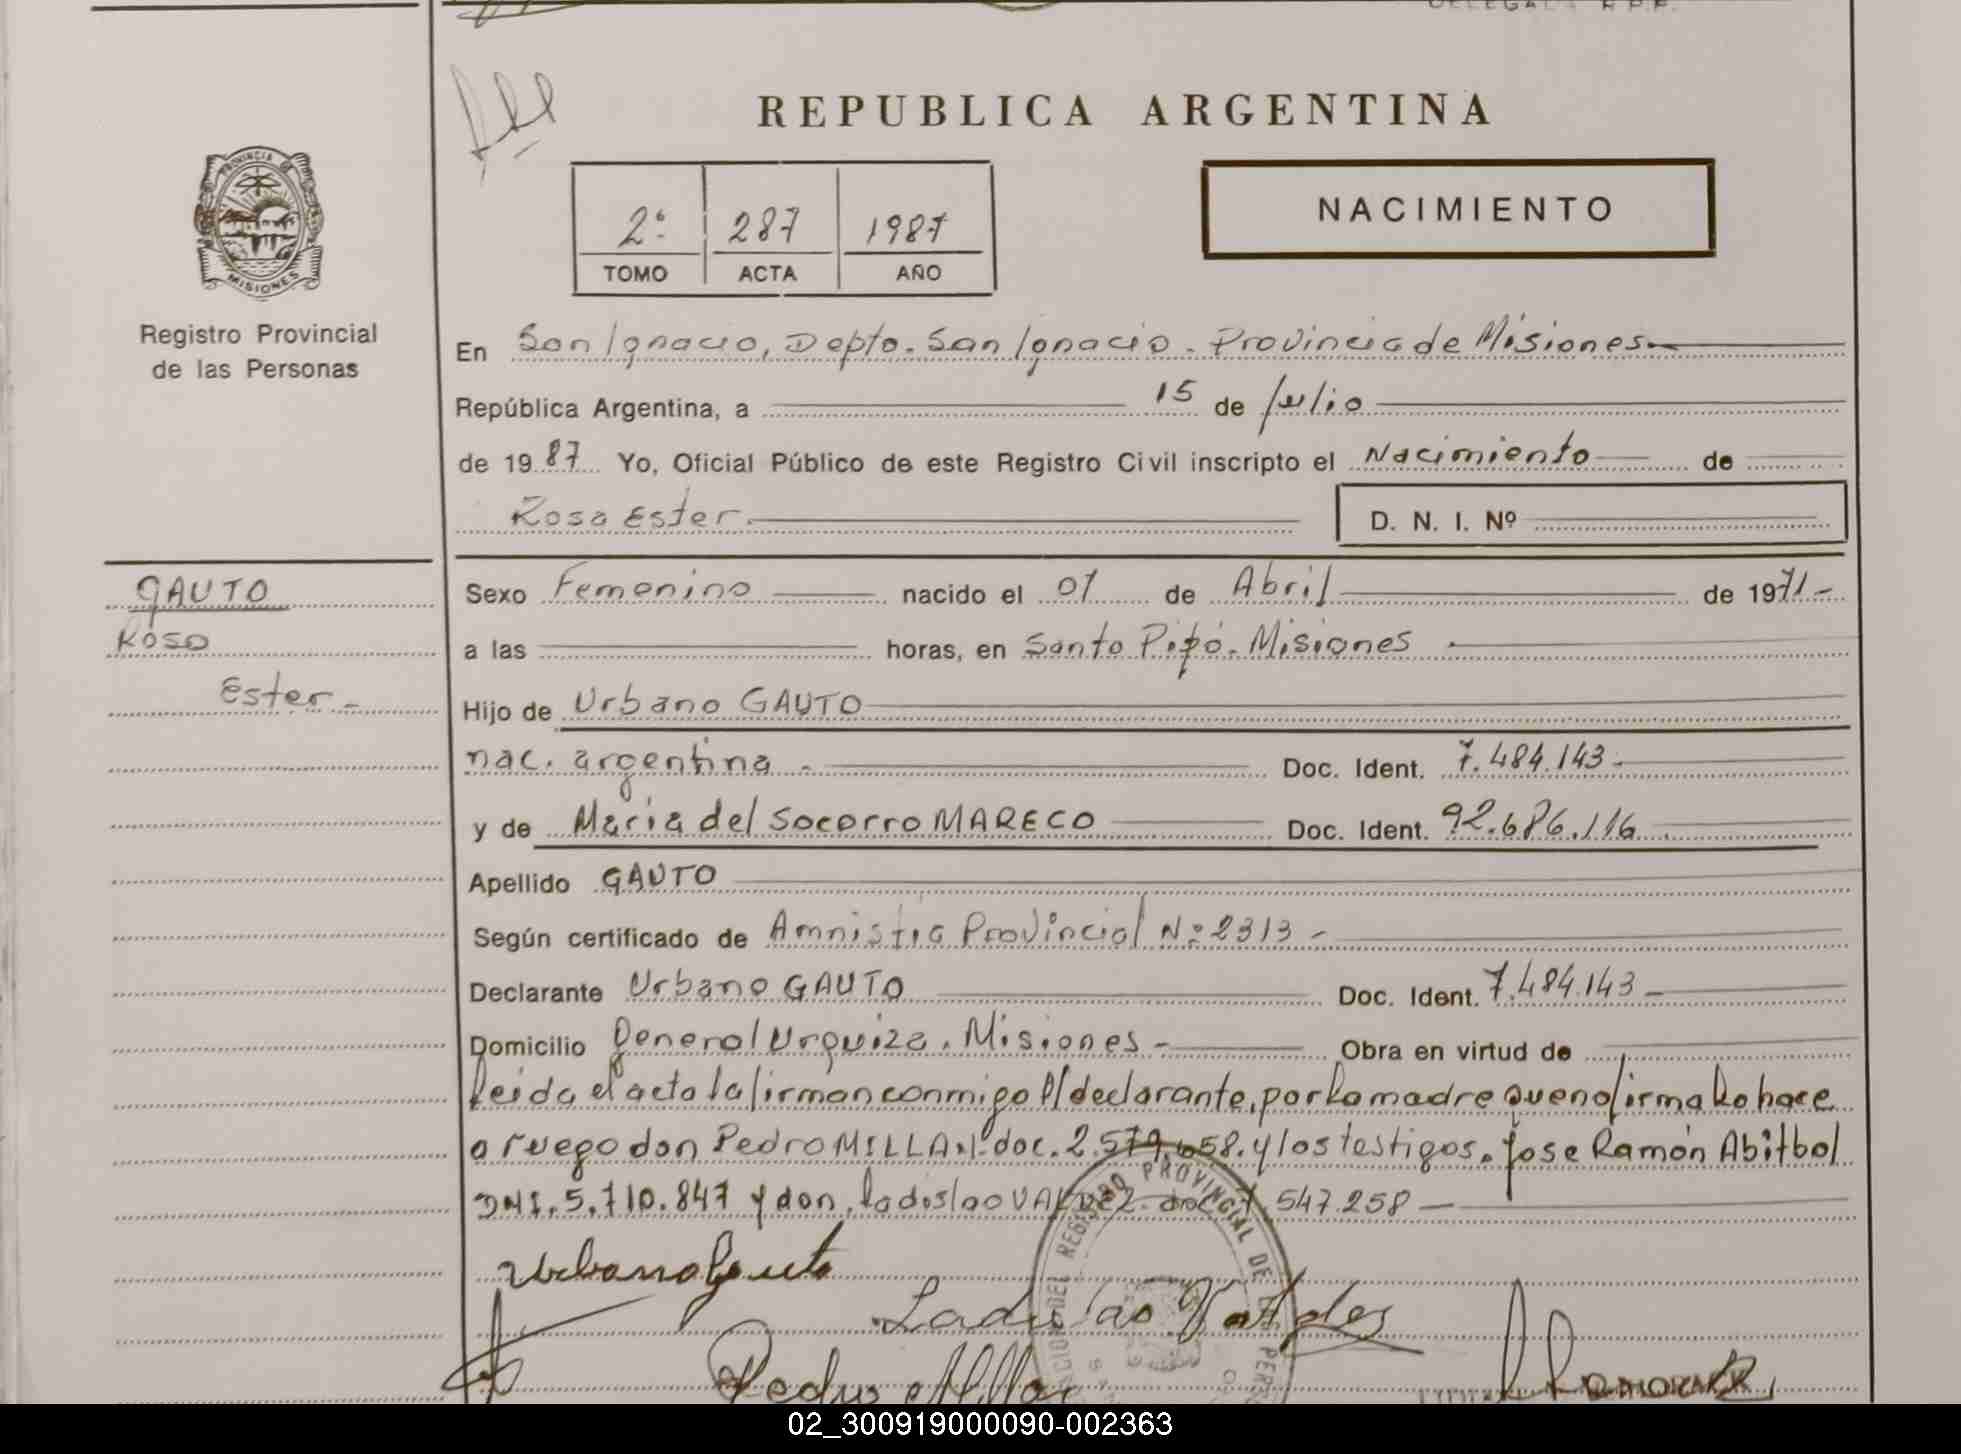 REPUBLICA ARGENTINA
PROVINCIA DE
MISIONES
Registro Provincial
de las Personas
2º 287 1987
TOMO ACTA AÑO
NACIMIENTO
En San Ignacio, Depto. San Ignacio. Provincia de Misiones
República Argentina, a 15 de Julio
de 1987 Yo, Oficial Público de este Registro Civil inscripto el Nacimiento de
Rosa Ester
D. N. I. Nº
GAUTO
Rosa
Ester
Sexo Femenino nacido el 01 de Abril de 1971
a las horas, en Santo Pipó. Misiones
Hijo de Urbano GAUTO
nac. argentina Doc. Ident. 7.484.143
y de Maria del Socorro MARECO Doc. Ident. 92.686.116
Apellido GAUTO
Según certificado de Amnistia Provincial Nº 2313
Declarante Urbano GAUTO Doc. Ident. 7.484.143
Domicilio General Urquiza. Misiones Obra en virtud de
leida el acta la firman conmigo el declarante, por la madre que no firma lo hace
a ruego don Pedro MILLAN doc. 2.579.658. y los testigos. Jose Ramón Abitbol
DNI. 5.710.847 y don ladislao VALDEZ doc. 7.547.258
REGISTRO PROVINCIAL DE
Urbano Gauto
Ladislao Valdes
Pedro Millan
02_300919000090-002363